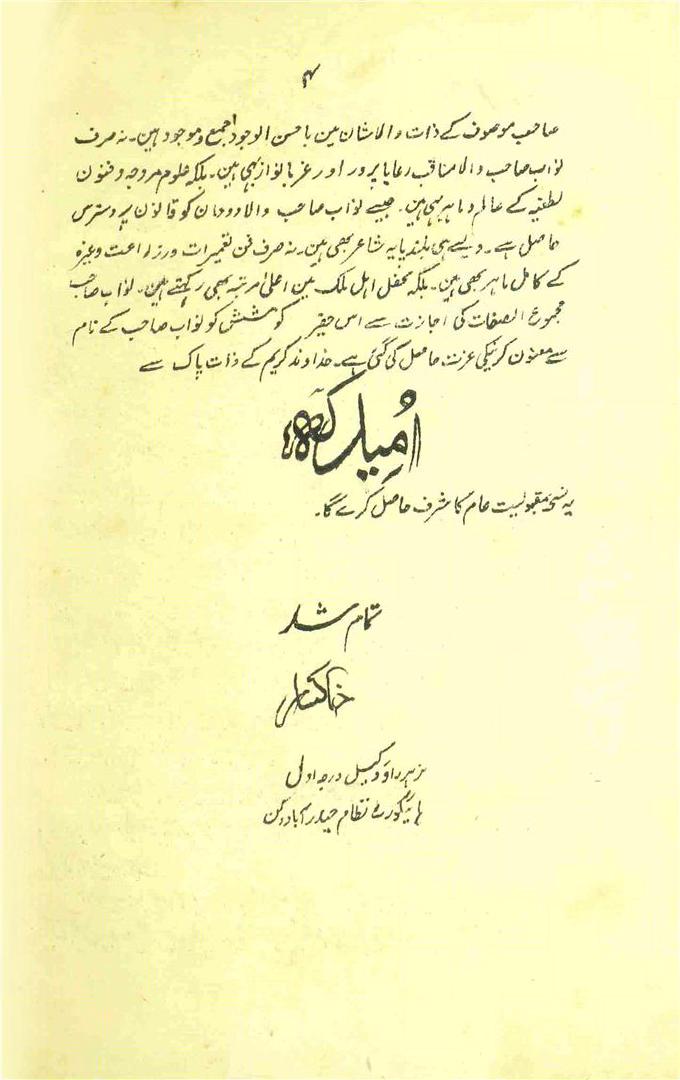 ۴
صاحب موصوف کے ذات والاشان مین باحسن الوجود اجمع و موجود ہین۔ نہ صرف
نواب صاحب والا مناقب رعایا پرور اور غربا نواز بہی ہین۔ بلکہ علوم مروجہ و فنون
لطفیہ کے عالم و ماہر بہی ہین۔ جیسے نواب صاحب والا دودمان کو قانون پر دسترس
حاصل ہے۔ ویسے ہی بلند پایہ شاعر بھی ہین۔ نہ صرف فن تعمیرات و زراعت وغیرہ
کے کامل ماہر بھی ہین۔ بلکہ محفل اہل ملک مین اعلیٰ مرتبہ بھی رکہتے ہین۔ نواب صاحب
مجموع الصفات کی اجازت سے اس حقیر کوشش کو نواب صاحب کے نام
سے معنون کرنیکی عزت حاصل کی گئی ہے۔ خداوند کریم کے ذات پاک سے
امید کہ
یہ نسخہ مقبولیت عام کا شرف حاصل کرے گا۔
تمام شد
خاکسار
نرہر راؤ وکیل درجہ اول
ہائیکورٹ نظام حیدرآباد دکن